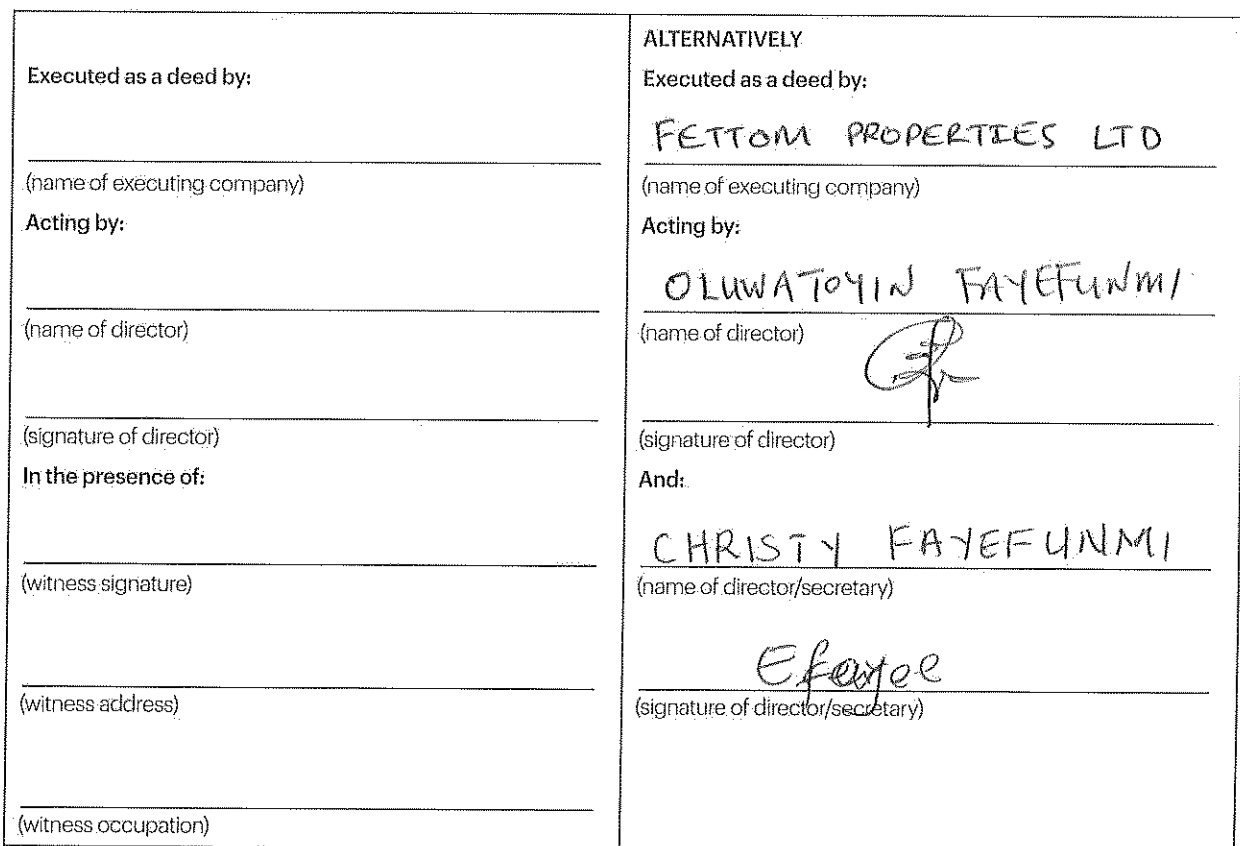 Executed as a deed by:
(name of executing company)
Acting by:
(name of director)
(signature of director)
In the presence of:
(witness signature)
(witness address)
(witness occupation)
ALTERNATIVELY
Executed as a deed by:
FETTOM PROPERTIES LTD
(name of executing company)
Acting by:
OLUWATOYIN FAYEFUNMI
(name of director)
(signature of director)
And:
CHRISTY FAYEFUNMI
(name of director/secretary)
(signature of director/secretary)